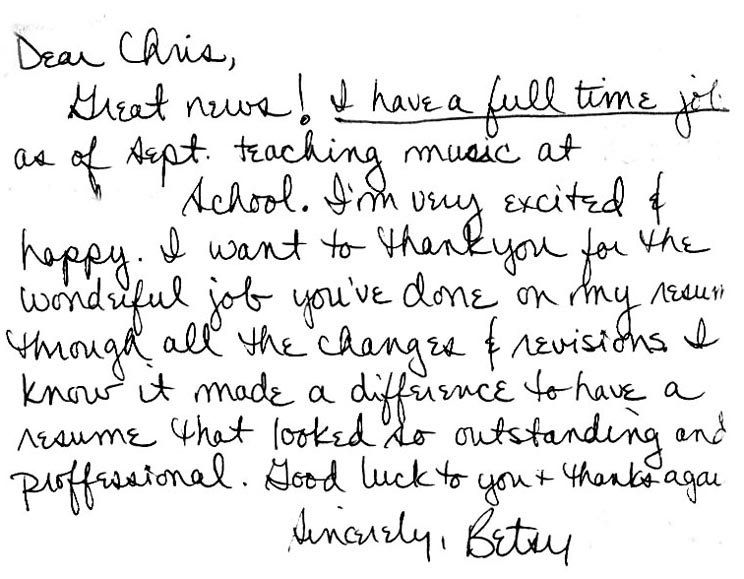 Dear Chris,
Great news! I have a full time job
as of Sept. teaching music at
School. I'm very excited &
happy. I want to thank you for the
wonderful job you've done on my resum
through all the changes & revisions. I
know it made a difference to have a
resume that looked so outstanding and
proffessional. Good luck to you + thanks agai
Sincerely, Betsy